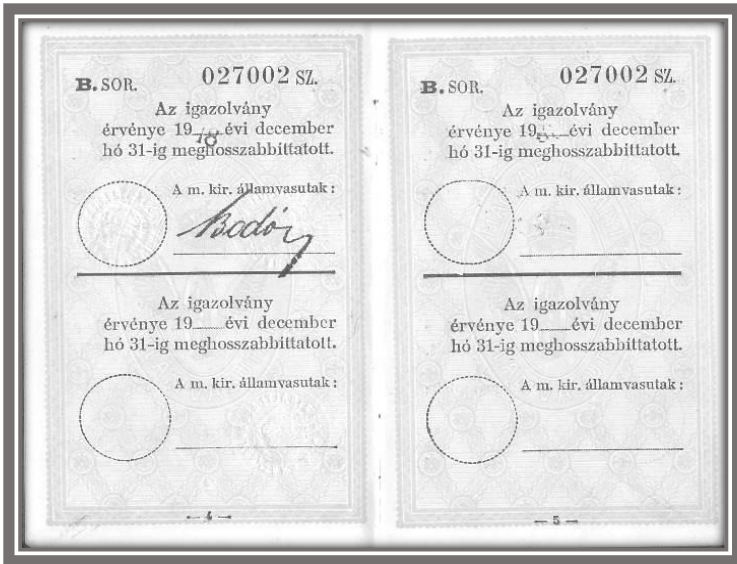 B. SOR. 027002 SZ.
Az igazolvány
érvénye 19 évi december
hó 31-ig meghosszabbittatott.
A m. kir. államvasutak :
Bodó
Az igazolvány
érvénye 19 évi december
hó 31-ig meghosszabbittatott.
A m. kir. államvasutak :
— 4 —
B. SOR. 027002 SZ.
Az igazolvány
érvénye 19 évi december
hó 31-ig meghosszabbittatott.
A m. kir. államvasutak :
Az igazolvány
érvénye 19 évi december
hó 31-ig meghosszabbittatott.
A m. kir. államvasutak :
— 5 —